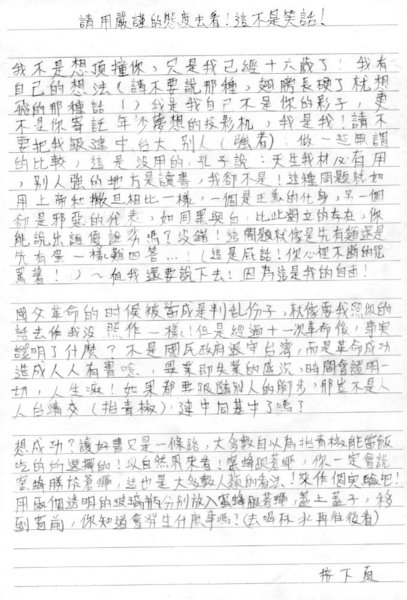 請用嚴謹的態度去看!這不是笑話!
我不是想頂撞你,只是我已經十六歲了!我有
自己的想法(請不要說那種,翅膀長硬了就想
飛的那種話!)我是我自己不是你的影子,更
不是你寄託年少夢想的投影机,我是我!請不
要把我跟建中.台大.別人(強者).做一起無謂
的比較,這是沒用的,孔子說:天生我材必有用
,別人強的地方是讀書,我卻不是!這種問題就如
用上帝和撒旦相比一樣,一個是正義的化身,另一個
卻是邪惡的代表,如同黑與白.比此對立的存在,你
能說出誰優誰劣嗎?沒錯!這問題就像是先有雞還是
先有蛋一樣難回答...!(這是屁話!你心裡不斷的咒
罵著!)~但我還要說下去!因為這是我的自由!
國父革命的时候被當成是判乱份子,就像要我照你的
話去做我沒照作一樣!但是經過十一次革命後,事實
證明了什麼?不是國民政府退守台湾,而是革命成功
造成人人有書唸.畢業即失業的盛況.時間會證明一
切,人生嘛!如果都要跟隨別人的腳步,那豈不是人
人台積交(指青椒).建中同基生了嗎?
想成功?讀好書又是一條路,大多數自以為指青椒能當飯
吃的的選擇的!以自然界來看!蜜蜂跟蒼蠅,你一定會說
蜜蜂勝於蒼蠅,這也是大多數人類的看法!來作個實驗吧!
用兩個透明的玻璃瓶分別放入蜜蜂跟蒼蠅,蓋上蓋子,移
到窗前,你知道會發生什麼事嗎?(去喝杯水再往後看)
按下頁